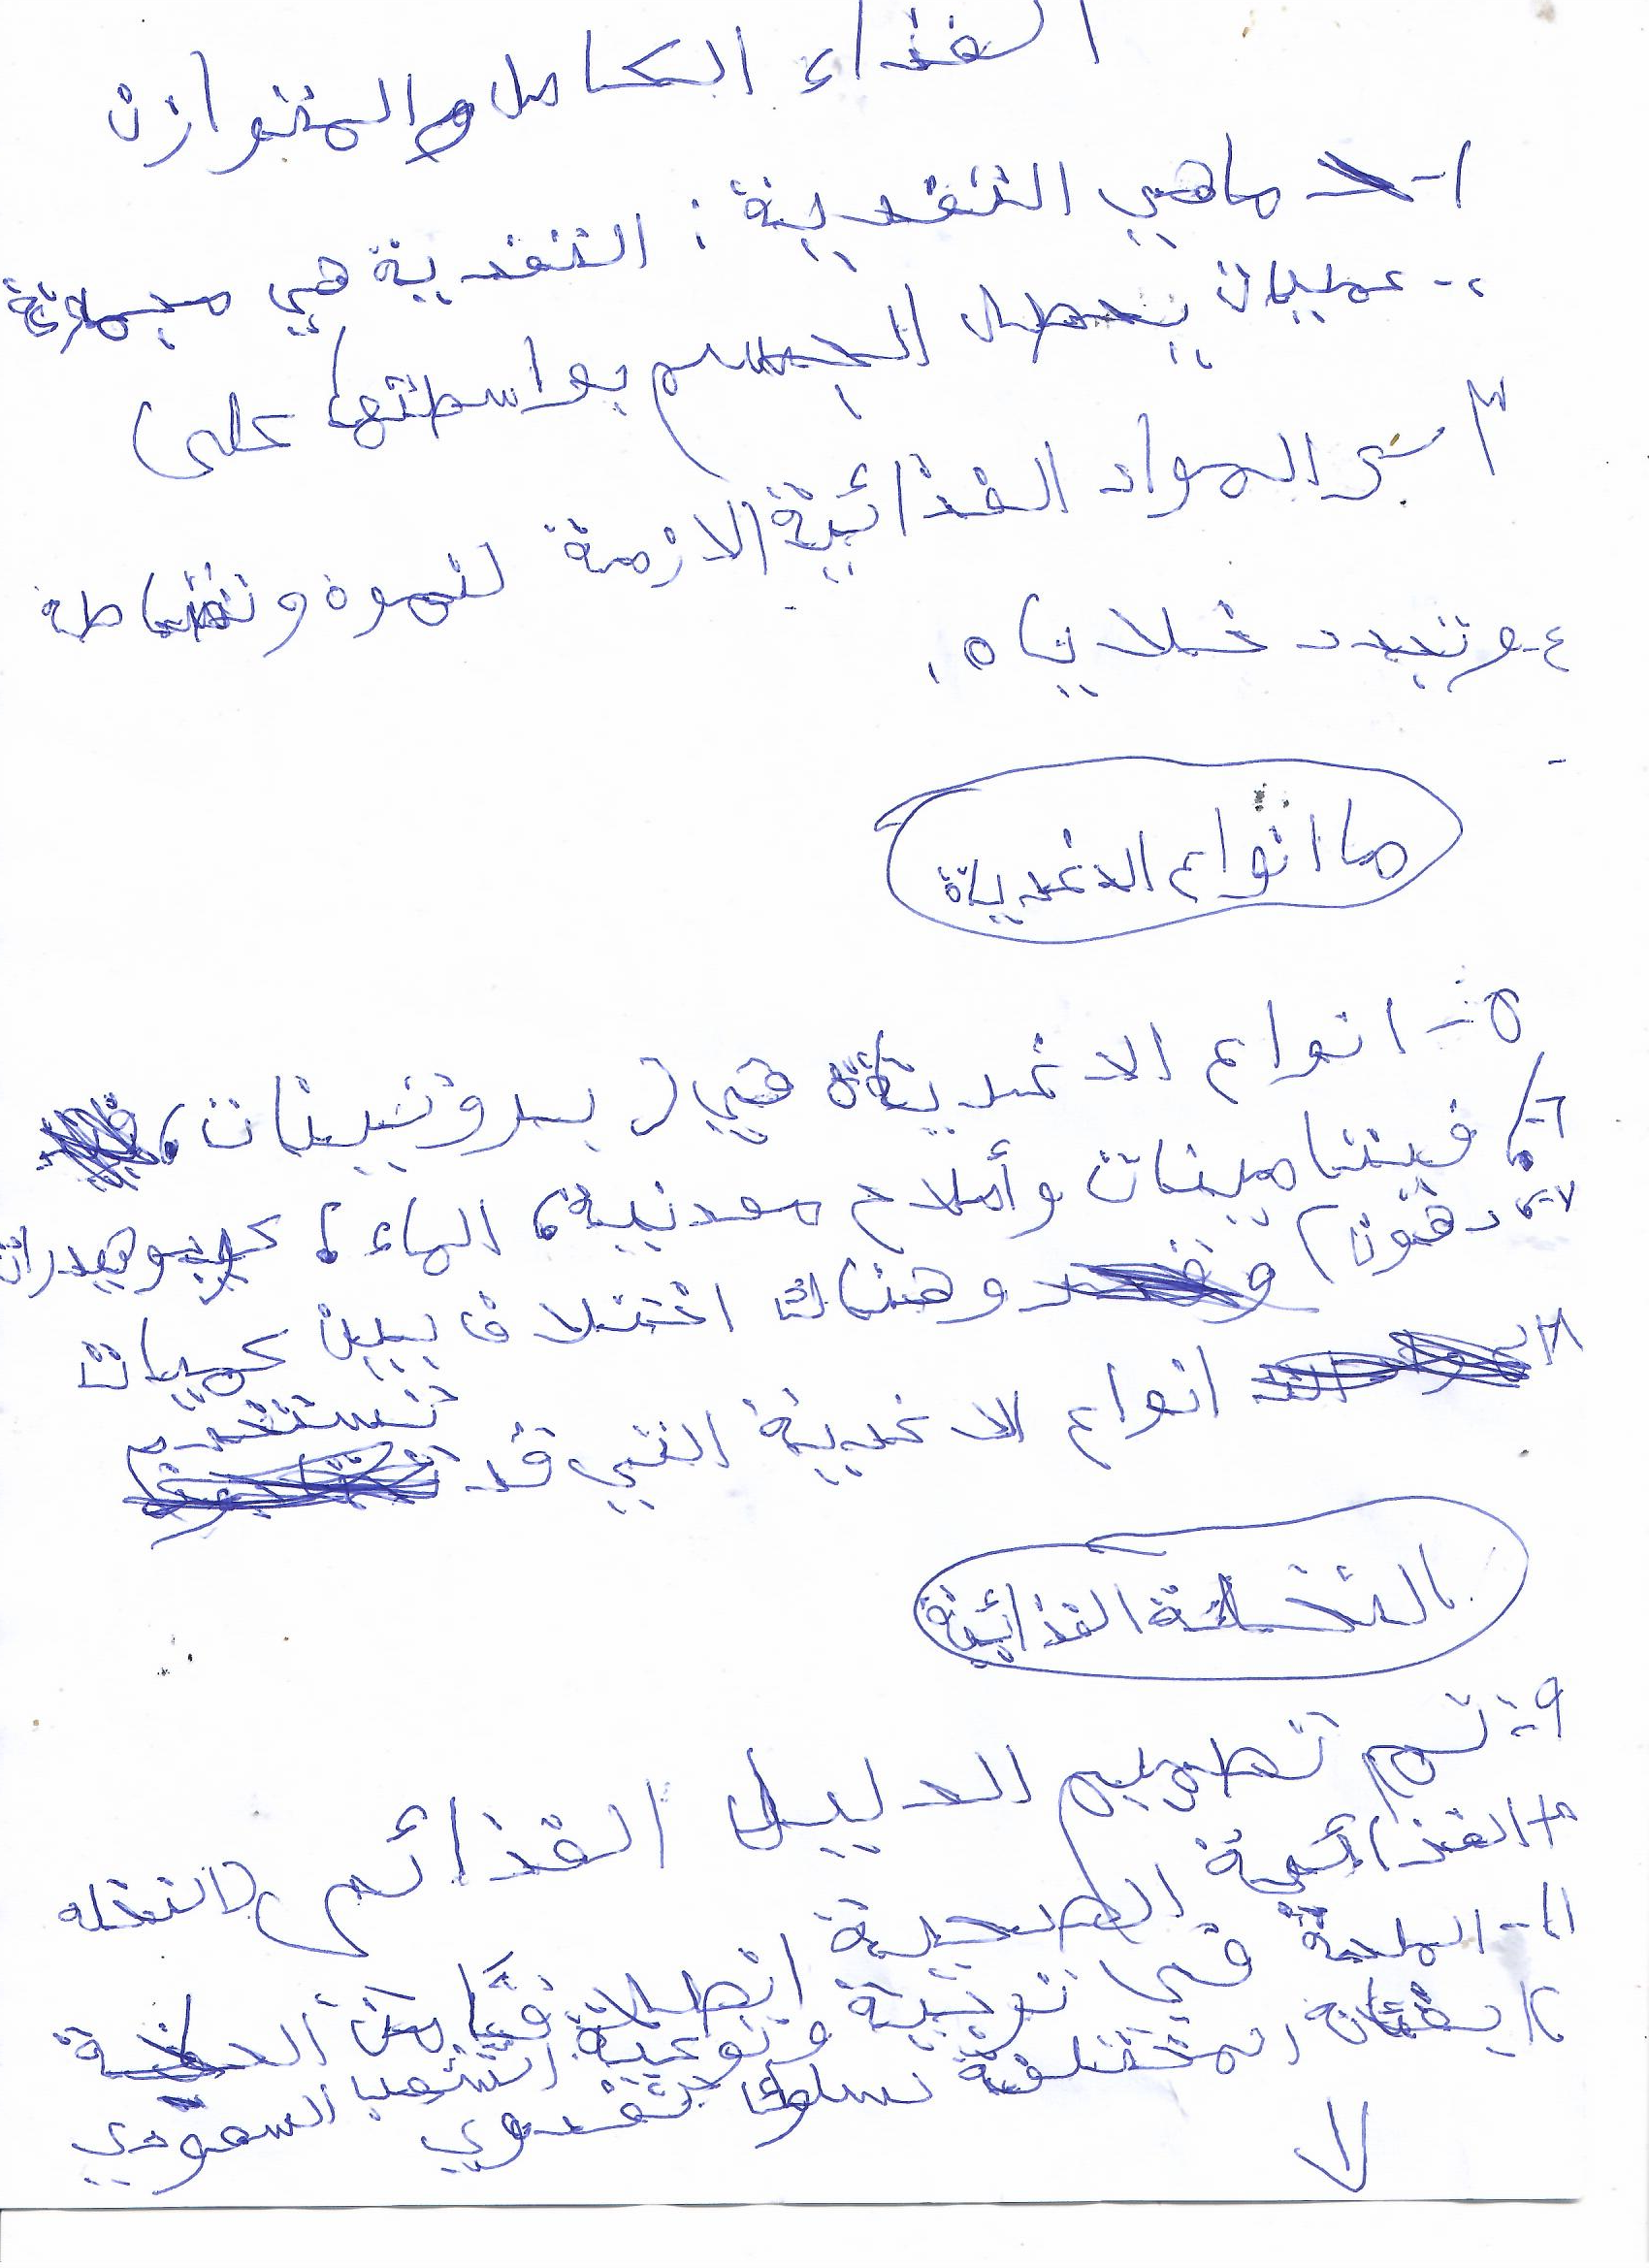 الغذاء الكامل والمتوازن
١- ماهي التغدية : التغدية هي مجموعة
٢- عمليات يحصل الجسم بواسطتها على
٣- المواد الغذائية الازمة لنموه ونشاطه
٤- وتجدد خلاياه.
ما انواع الاغدية
٥- انواع الاغدية هي ( بروتينات ،
٦- فيتنامينات وأملاح معدنية، الماء ، كربوهيدرات
٧- دهون ) وهناك اختلاف بين كميات
٨- انواع الاغدية التي قد تستخدم
النخلة الغذائية
٩- تم تصميم الدليل الغذائي (النخله
١٠- الغذائية الصحية انطلاقًا من الحاجة
١١- الملحة في تربية وتوعية الشعب السعودي
١٢ بفئاته المختلفة سلوك تغدوي